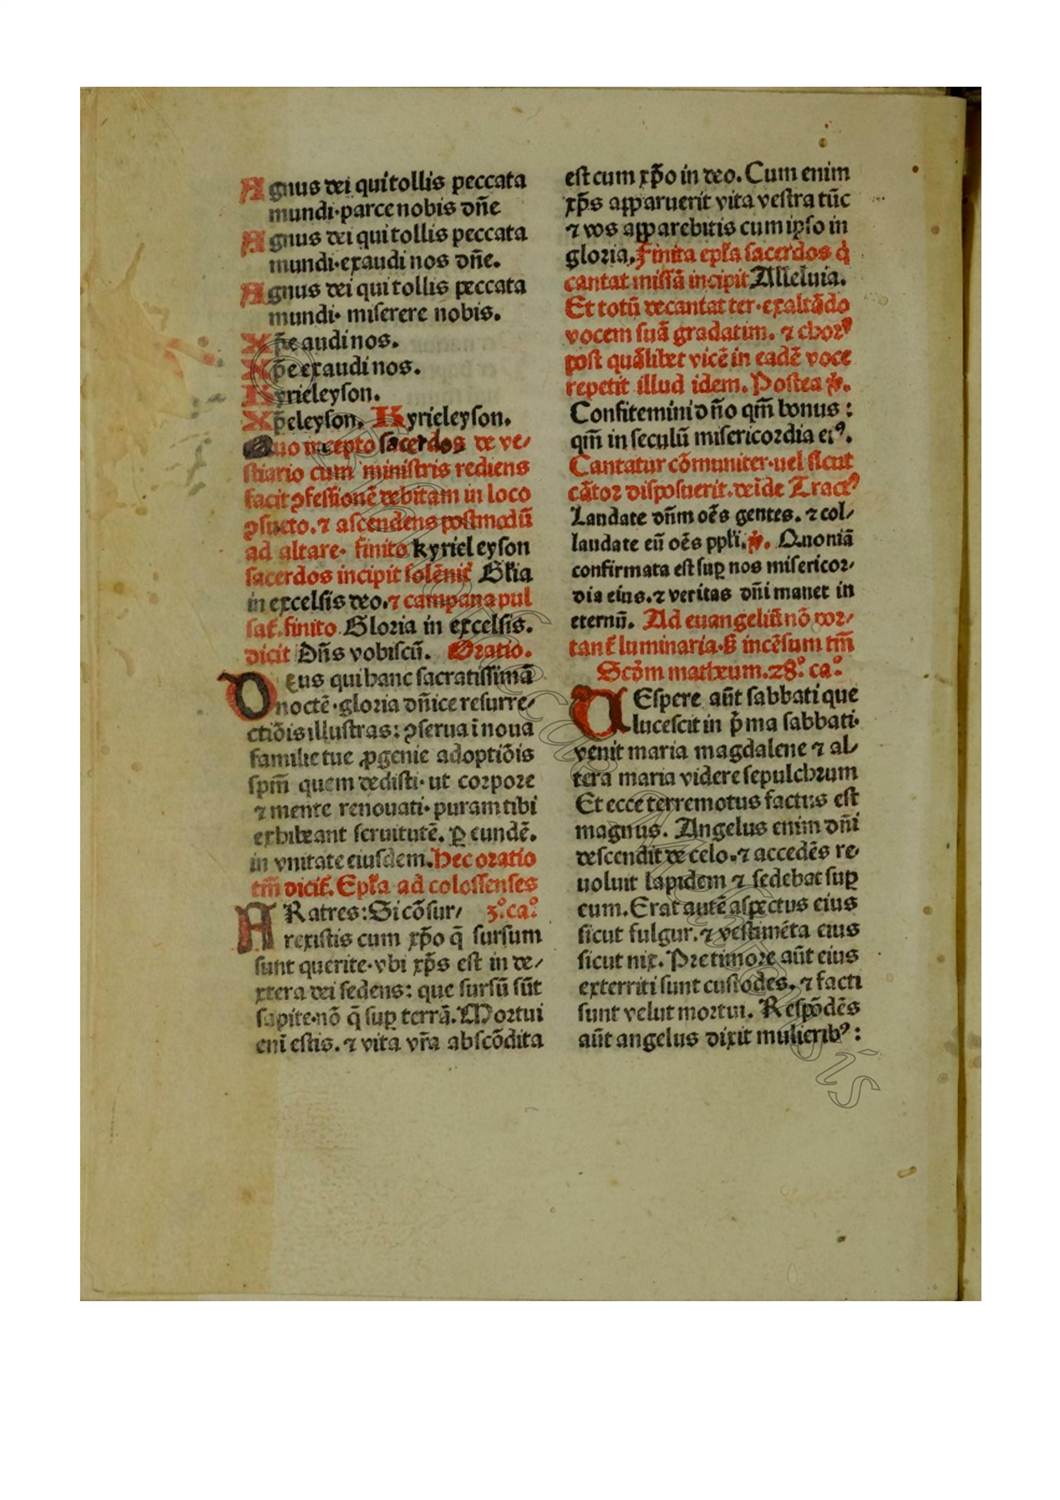 Agnus dei qui tollis peccata
mundi·parce nobis dñe
Agnus dei qui tollis peccata
mundi·exaudi nos dñe.
Agnus dei qui tollis peccata
mundi· miserere nobis.
Xp̄e audi nos.
Xp̄e exaudi nos.
Kyrieleyson.
Xp̄eleyson. Kyrieleyson.
Quo incepto sacerdos de ve/
stiario cum ministris rediens
facit ꝯfessionē debitam in loco
ꝯsueto.⁊ ascendens postmodū
ad altare· finito kyrieleyson
sacerdos incipit solēnit̄ Gl̄ia
in excelsis deo.⁊ campana pul
sat̄.finito Gloria in excelsis.
dicit Dn̄s vobiscū. Oratio.
Deus qui hanc sacratissimā
noctē·gloria dn̄ice resurre/
ctiōis illustras: ꝯserua ī noua
familie tue ꝓgenie adoptiōis
spm̄ quem dedisti·ut corpore
⁊ mente renouati·puram tibi
exhibeant seruitutē. Ꝑ eundē.
in vnitate eiusdem.Hec oratio
tm̄ dicit̄.Epl̄a ad colossenses
FRatres:Si cō sur/ 3.° ca.°
rexistis cum xp̄o q̄ sursum
sunt querite·vbi xp̄s est in de/
xtera dei sedens: que sursū sūt
sapite·nō q̄ suꝑ terrā.Mortui
eni estis.⁊ vita vr̄a abscōdita
est cum xp̄o in deo.Cum enim
xp̄s apparuerit vita vestra tūc
⁊ vos apparebitis cum ipso in
gloria.Finita epl̄a sacerdos q̄
cantat missā incipit Alleluia.
Et totū decantat ter·exaltādo
vocem suā gradatim. ⁊ chorꝰ
post quālibet vicē in eadē voce
repetit illud idem.Postea ℣.
Confitemini dño qm̄ bonus:
qm̄ in seculū misericordia eiꝰ.
Cantatur cōmuniter·uel sicut
cātor disposuerit.deīde Tractꝰ
Laudate dn̄m oēs gentes.⁊ col/
laudate eū oēs ppl̄i.℣. Quoniā
confirmata est suꝑ nos misericor/
dia eius.⁊ veritas dn̄i manet in
eternū. Ad euangeliū nō por/
tant̄ luminaria·ẞ incēsum tm̄
Scd̄m matheum.28.° ca.°
VEspere aūt sabbati que
lucescit in p̄ma sabbati·
venit maria magdalene ⁊ al/
tera maria videre sepulchrum
Et ecce terremotus factus est
magnus. Angelus enim dn̄i
descendit de celo.⁊ accedēs re/
uoluit lapidem ⁊ sedebat suꝑ
eum.Erat autē aspectus eius
sicut fulgur.⁊ vestimēta eius
sicut nix.Pre timore aūt eius
exterriti sunt custodes.⁊ facti
sunt velut mortui. Respōdēs
aūt angelus dixit mulieribꝰ: